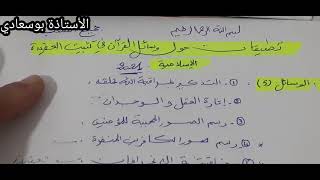 الأستاذة بوسعادي
بسم الله الرحمن الرحيم
تطبيقات حول وسائل القرآن في تثبيت العقيدة
الإسلامية
الوسائل (5) 1. التذكير بمراقبة الله لخلقه
2. إثارة العقل والوجدان
3. رسم الصور المحببة للمؤمنين
4. رسم صور الكافرين المنفرة